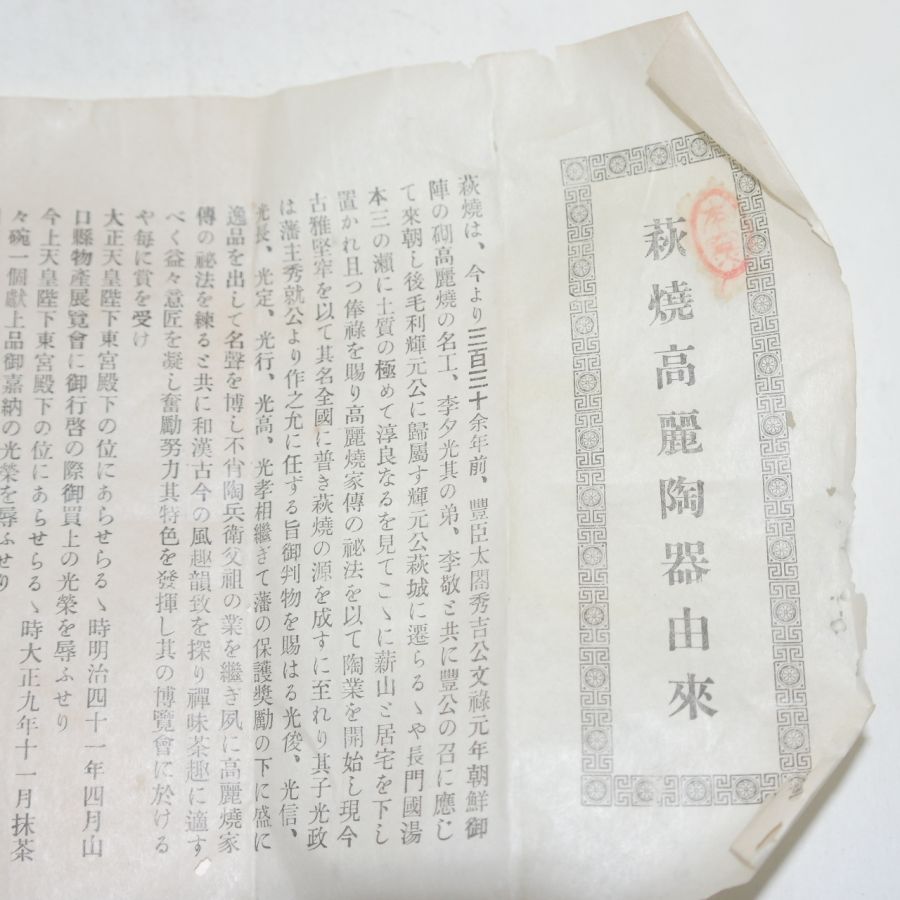 萩燒高麗陶器由來
萩燒は、今より三百三十余年前、豐臣太閤秀吉公文祿元年朝鮮御
陣の砌高麗燒の名工、李夕光其の弟、李敬と共に豐公の召に應じ
て來朝し後毛利輝元公に歸屬す輝元公萩城に遷らるゝや長門國湯
本三の瀨に土質の極めて淳良なるを見てこゝに薪山と居宅を下し
置かれ且つ俸祿を賜り高麗燒家傳の祕法を以て陶業を開始し現今
古雅堅牢を以て其名全國に普き萩燒の源を成すに至れり其子光政
は藩主秀就公より作之允に任ずる旨御判物を賜はる光俊、光信、
光長、光定、光行、光高、光孝相繼ぎて藩の保護奬勵の下に盛に
逸品を出して名聲を博し不肖陶兵衛父祖の業を繼ぎ夙に高麗燒家
傳の祕法を練ると共に和漢古今の風趣韻致を探り禪味茶趣に適す
べく益々意匠を凝し奮勵努力其特色を發揮し其の博覽會に於ける
や每に賞を受け
大正天皇陛下東宮殿下の位にあらせらるゝ時明治四十一年四月山
口縣物產展覽會に御行啓の際御買上の光榮を辱ふせり
今上天皇陛下東宮殿下の位にあらせらるゝ時大正九年十一月抹茶
々碗一個獻上品御嘉納の光榮を辱ふせり